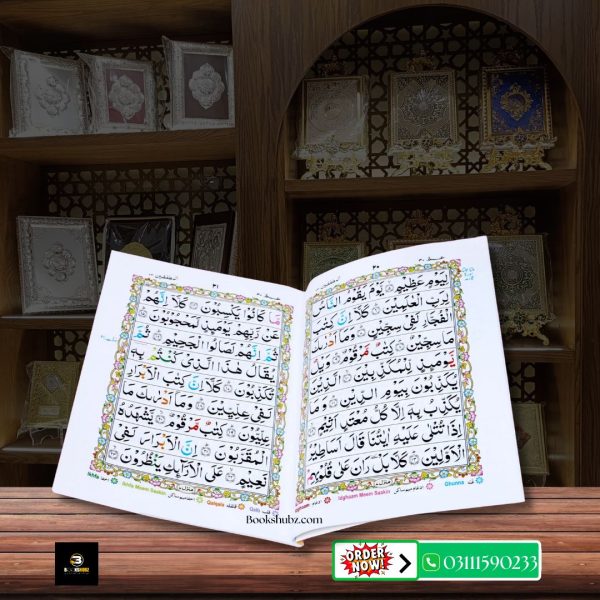 ٣٠
لِيَوْمٍ عَظِيْمٍ ۙ يَّوْمَ يَقُوْمُ النَّاسُ
لِرَبِّ الْعٰلَمِيْنَ ؕ كَلَّاۤ اِنَّ كِتٰبَ
الْفُجَّارِ لَفِيْ سِجِّيْنٍ ؕ وَمَاۤ اَدْرٰىكَ
مَا سِجِّيْنٌ ؕ كِتٰبٌ مَّرْقُوْمٌ ؕ وَيْلٌ
يَّوْمَئِذٍ لِّلْمُكَذِّبِيْنَ ۙ الَّذِيْنَ
يُكَذِّبُوْنَ بِيَوْمِ الدِّيْنِ ؕ وَمَا
يُكَذِّبُ بِهٖۤ اِلَّا كُلُّ مُعْتَدٍ اَثِيْمٍ ۙ
اِذَا تُتْلٰى عَلَيْهِ اٰيٰتُنَا قَالَ اَسَاطِيْرُ
الْاَوَّلِيْنَ ؕ كَلَّا بَلْ رَانَ عَلٰى قُلُوْبِهِمْ
Idghaam Meem Saakin
Ghunna
٣١
مَّا كَانُوْا يَكْسِبُوْنَ ۞ كَلَّاۤ اِنَّهُمْ
عَنْ رَّبِّهِمْ يَوْمَئِذٍ لَّمَحْجُوْبُوْنَ ؕ
ثُمَّ اِنَّهُمْ لَصَالُوا الْجَحِيْمِ ؕ ثُمَّ
يُقَالُ هٰذَا الَّذِيْ كُنْتُمْ بِهٖ
تُكَذِّبُوْنَ ؕ كَلَّاۤ اِنَّ كِتٰبَ الْاَبْرَارِ
لَفِيْ عِلِّيِّيْنَ ؕ وَمَاۤ اَدْرٰىكَ مَا
عِلِّيُّوْنَ ؕ كِتٰبٌ مَّرْقُوْمٌ ۙ يَّشْهَدُهُ
الْمُقَرَّبُوْنَ ؕ اِنَّ الْاَبْرَارَ لَفِيْ
نَعِيْمٍ ۙ عَلَى الْاَرَآئِكِ يَنْظُرُوْنَ
Ikhfa Ikhfa Meem Saakin Qalqala Qalb
Bookshubz.com
BOOKSHUBZ
ORDER
NOW!
03111590233